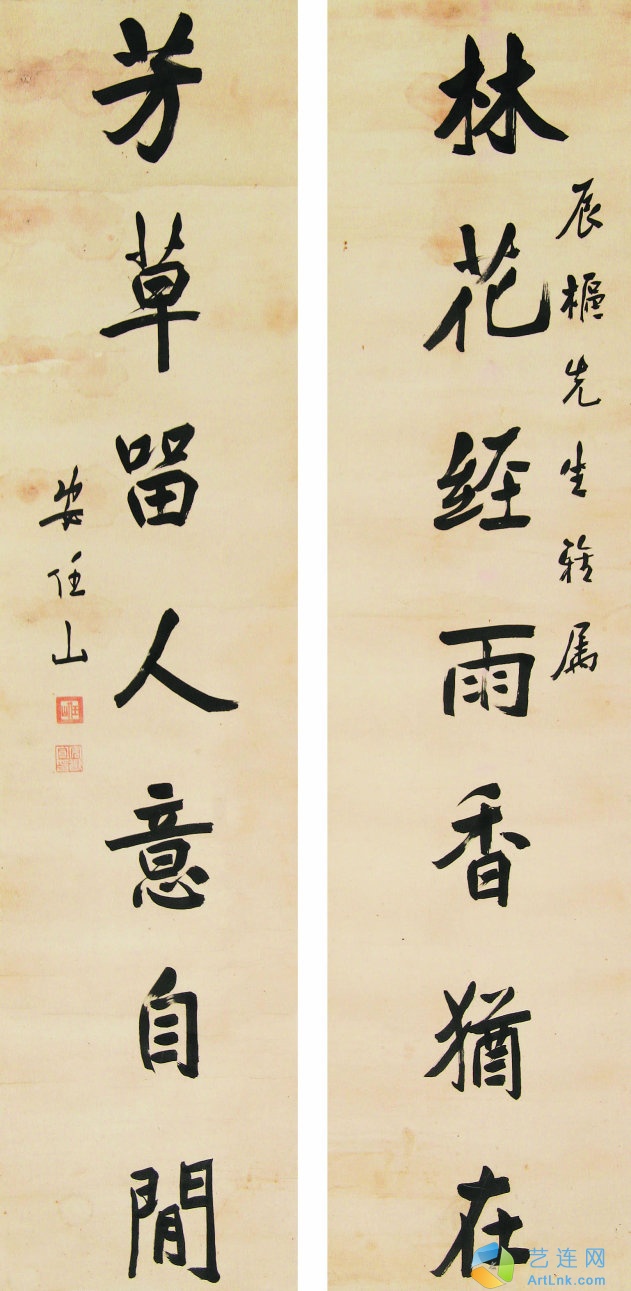 林花經雨香猶在
辰樞先生雅屬
芳草留人意自閒
安任山
艺连网
ArtLnk.com